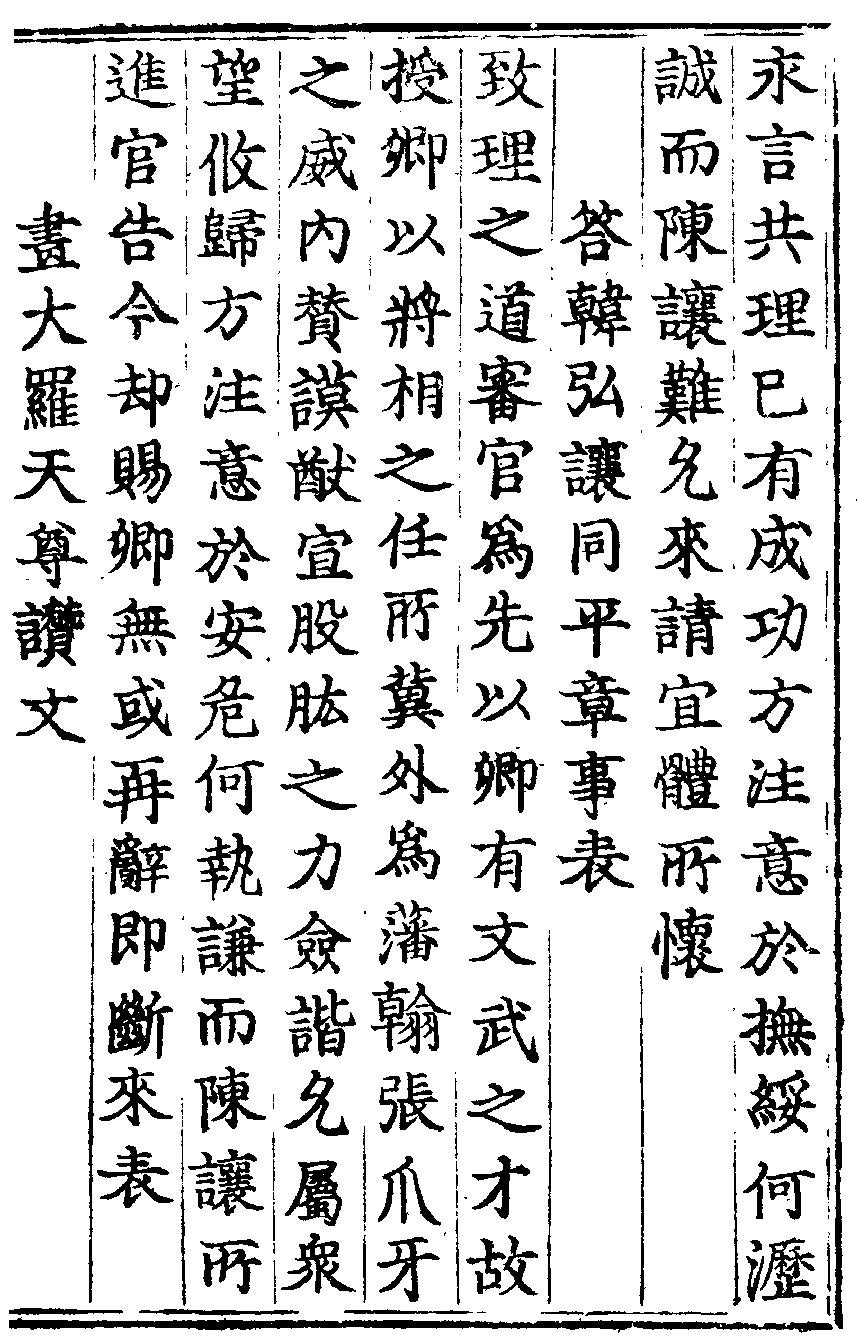 永言共理已有成功方注意於撫綏何瀝
誠而陳讓難允來請宜體所懷
答韓弘讓同平章事表
致理之道審官爲先以卿有文武之才故
授卿以將相之任所冀外爲藩翰張爪牙
之威内賛謨猷宣股肱之力僉諧允屬衆
望攸歸方注意於安危何執謙而陳讓所
進官告今却賜卿無或再辭即斷來表
畫大羅天尊讚文